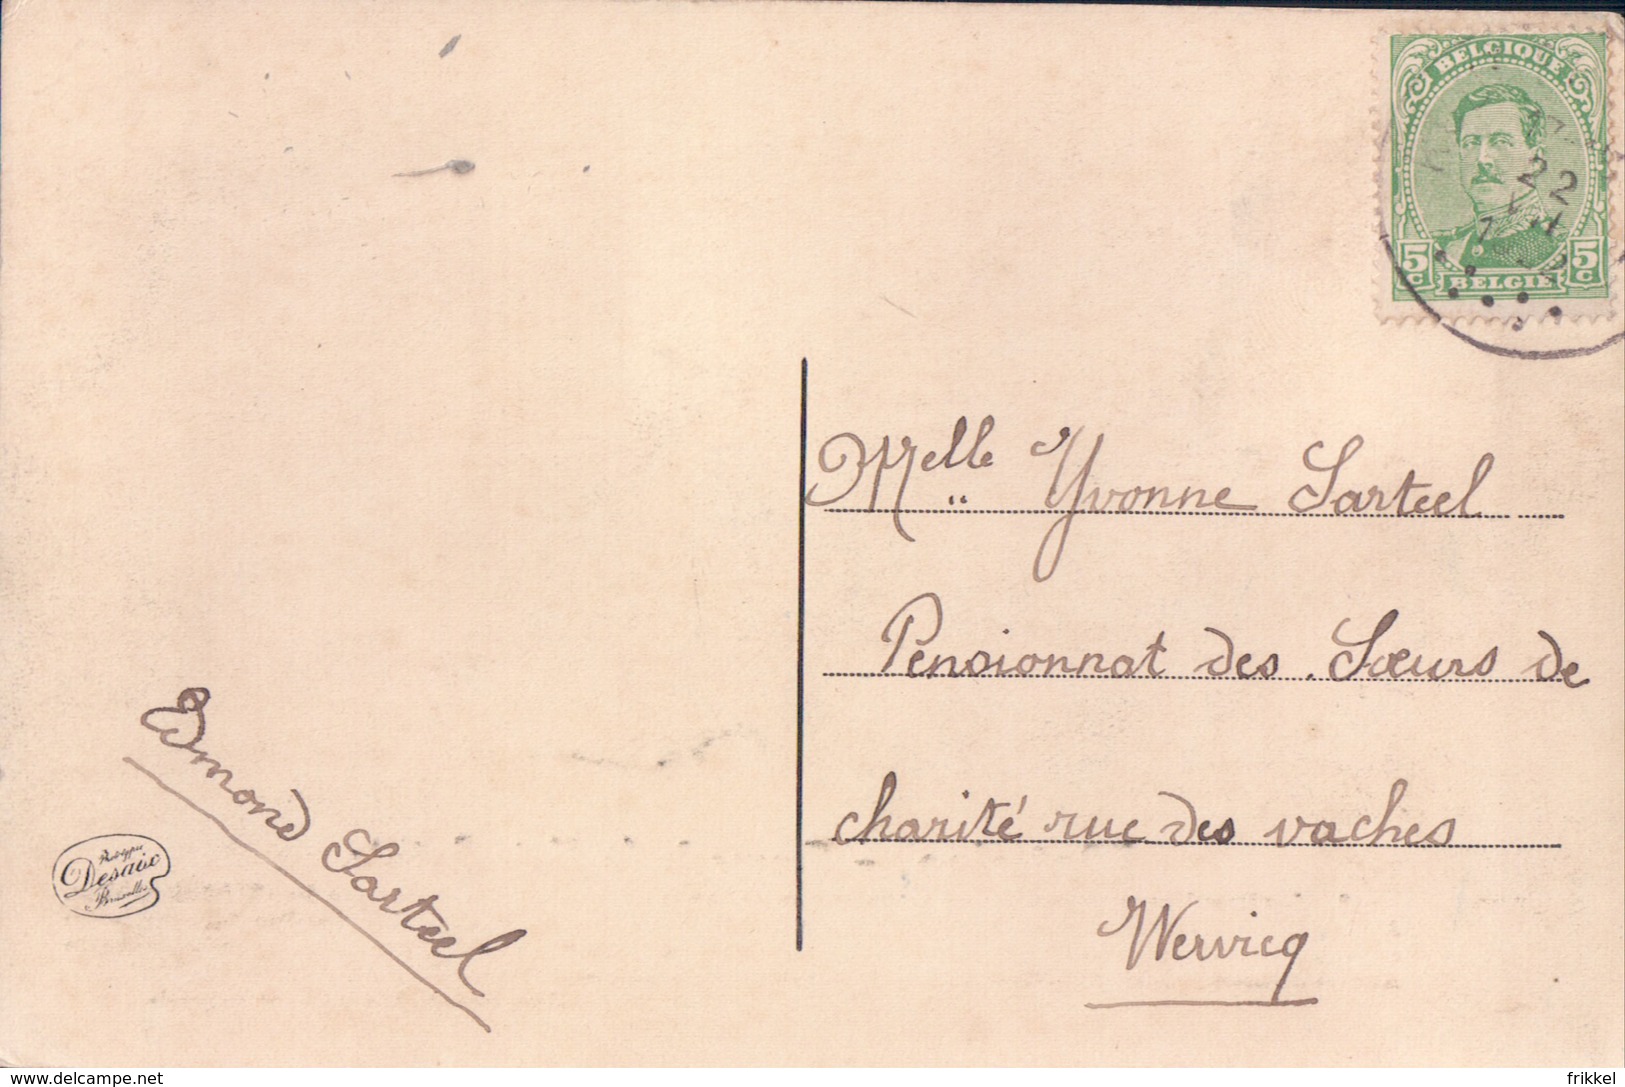 BELGIQUE
22
5c 5c
BELGIË
Melle Yvonne Sarteel
Pensionnat des Sœurs de
charité rue des vaches
Wervicq
Edmond Sarteel
Desaix
Bruxelles
www.delcampe.net
frikkel